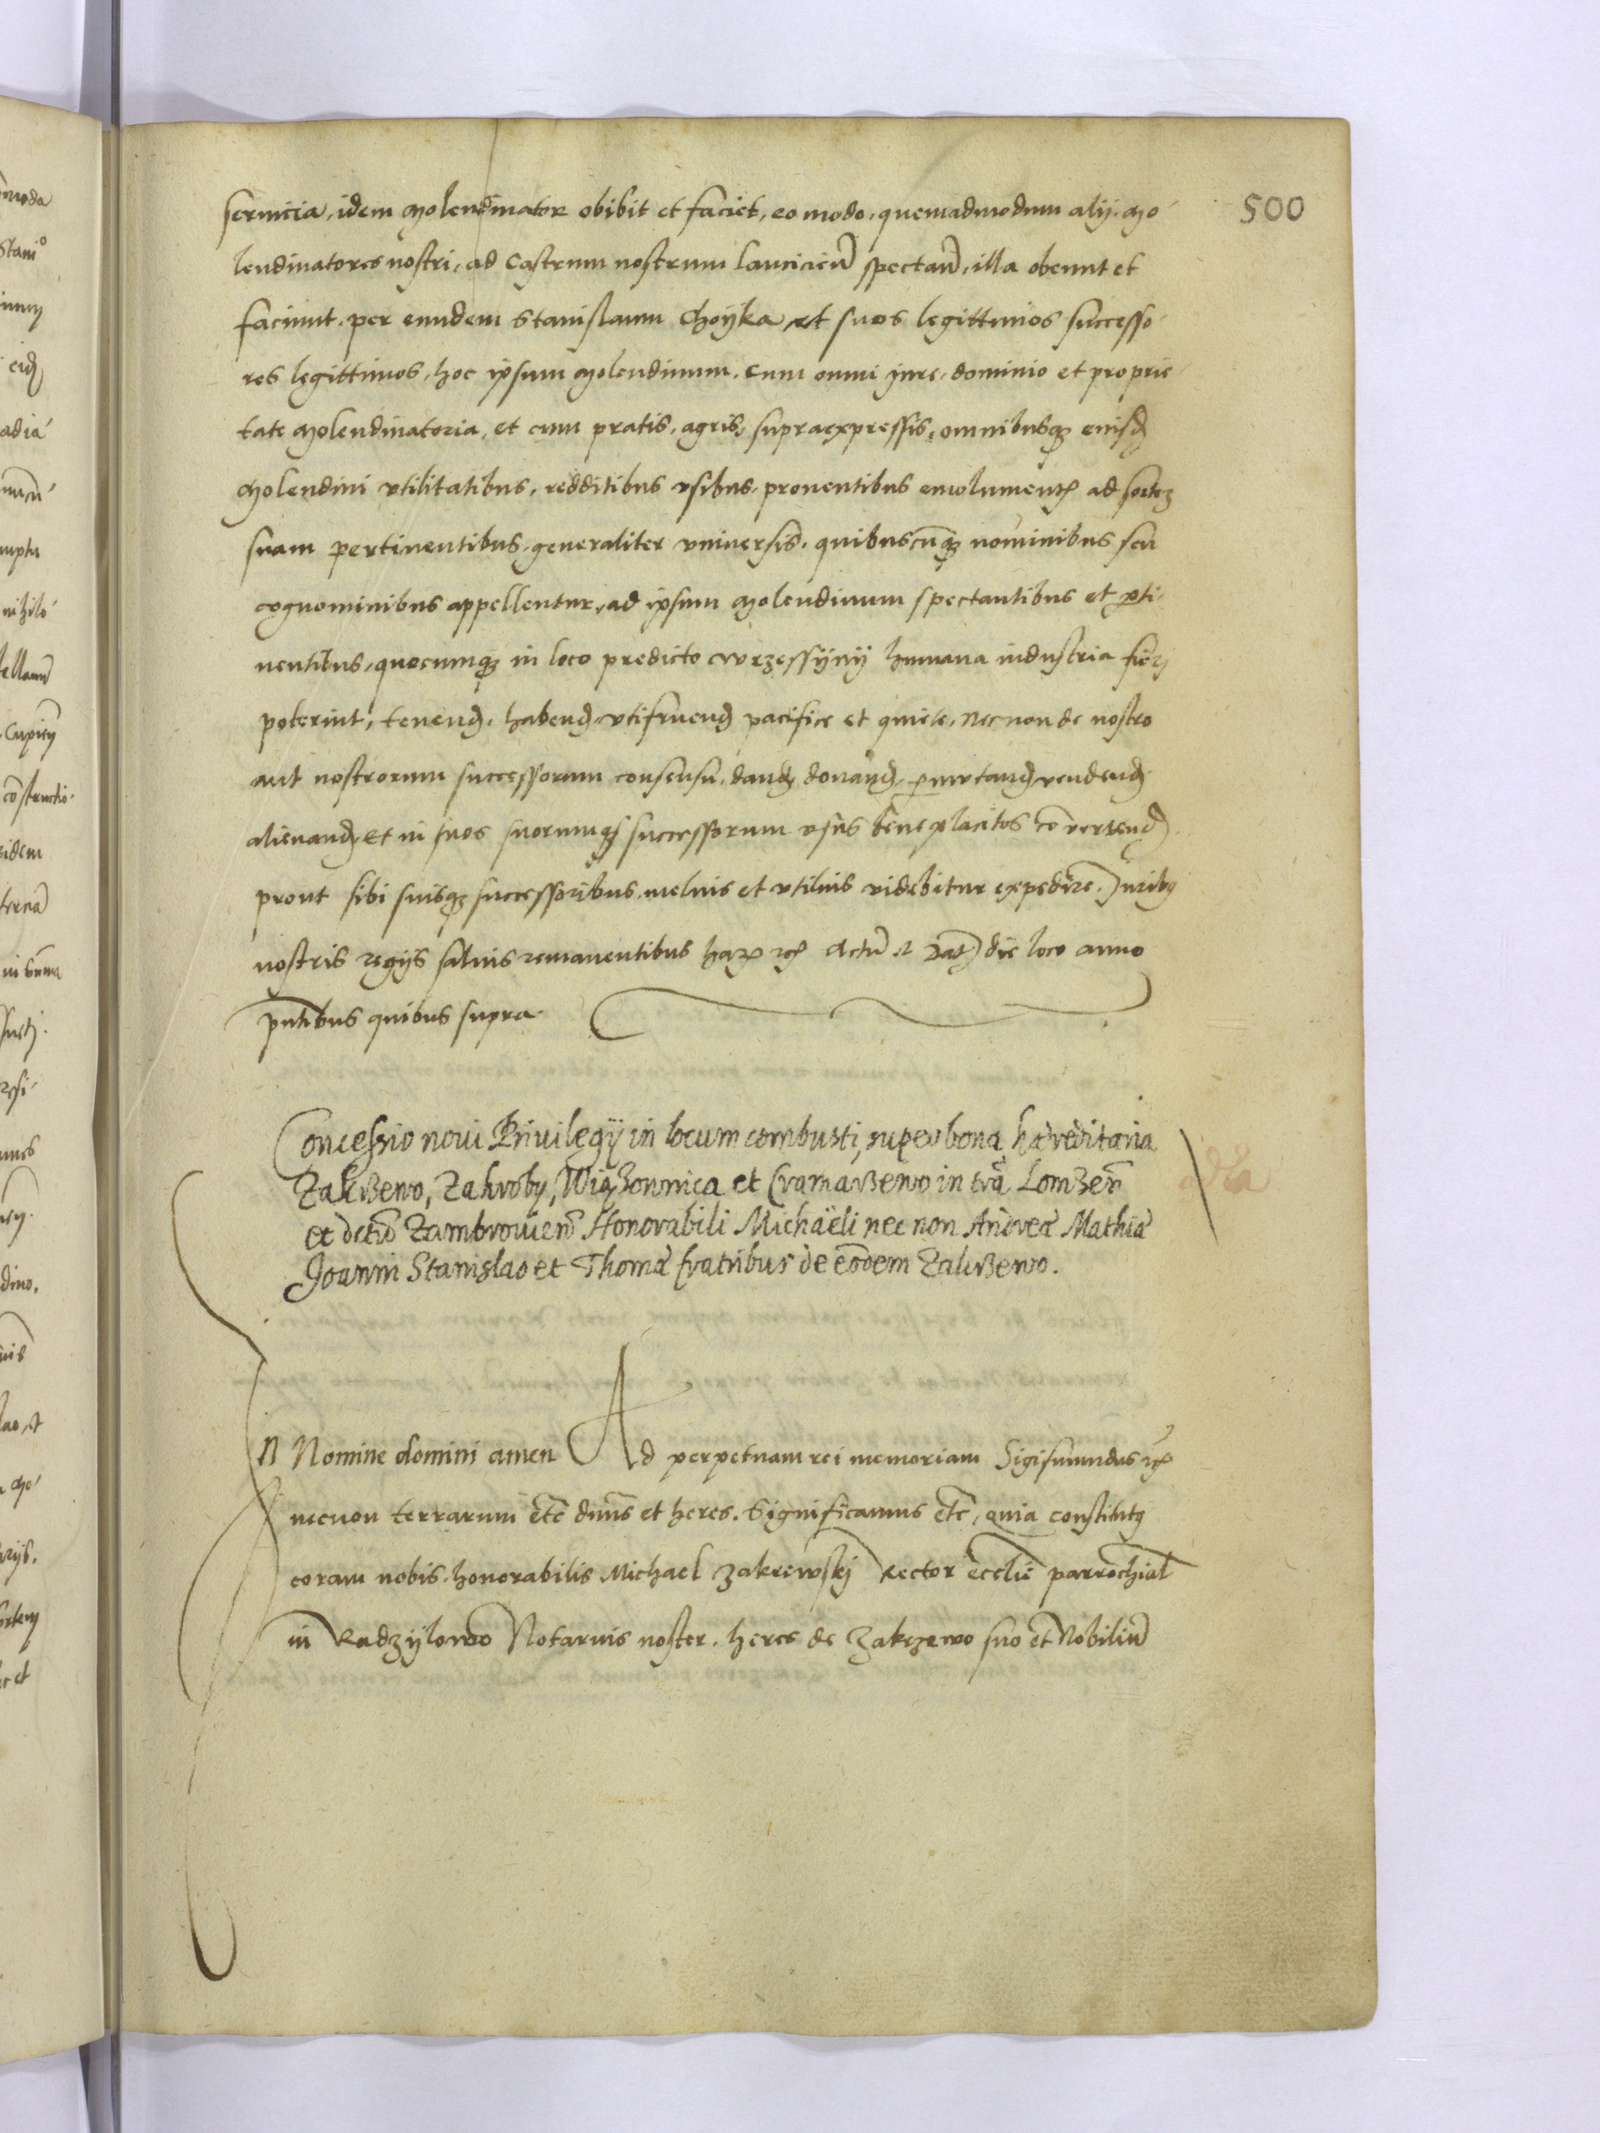 500
seruicia, idem molendinator obibit et faciet, eo modo, quemadmodum alij mo-
lendinatores nostri, ad Castrum nostrum Lancicien̄ spectan̄, illa obeunt et
faciunt. per eundem Stanislaum Choyka et suos legittimos successo-
res legittimos, hoc ipsum molendinum, cum omni jure, dominio et proprie-
tate molendinatoria, et cum pratis, agris, supraexpressis, omnibusqȝ eiusd
molendini vtilitatibus, redditibus vsibus, prouentibus emolument ad sortē
suam pertinentibus, generaliter vniuersis, quibuscunqȝ nominibus seu
cognominibus appellentur, ad ipsum molendinum spectantibus et pti-
nentibus, quocumqȝ in loco predicto humana industria fieri
poterint, tenend, habend vtifruend pacifice et quiete, Necnon de nostro
aut nostrorum successorum consensu, dand donand, pmutand vendend
alienand, Et in suos suorumqȝ successorum vsus beneplacitos cōuertend
prout sibi suisqȝ successoribus melius et vtilius videbitur expedire. Juribȝ
nostris regijs saluis remanentibus har Actū et Dat die loco anno
pntibus quibus supra.
Concessio noui Priuilegij in locum combusti, super bona hæreditaria
Zakrzewo, Zakroby, et in trā Lomzen̄
et dctū Zambrouien̄ Honorabili Michaëli nec non Andreæ Mathiæ
Joanni Stanislao et Thomæ fratribus de eodem Zakrzewo.
In Nomine domini amen Ad perpetuam rei memoriam Sigismundus
necnon terrarum etc dnus et heres. Significamus etc, quia constitutȝ
coram nobis honorabilis Michael Zakrewskj Rector ecclie parrochial
in Radzylowo Notarius noster, heres de Zakrzewo suo et Nobiliū